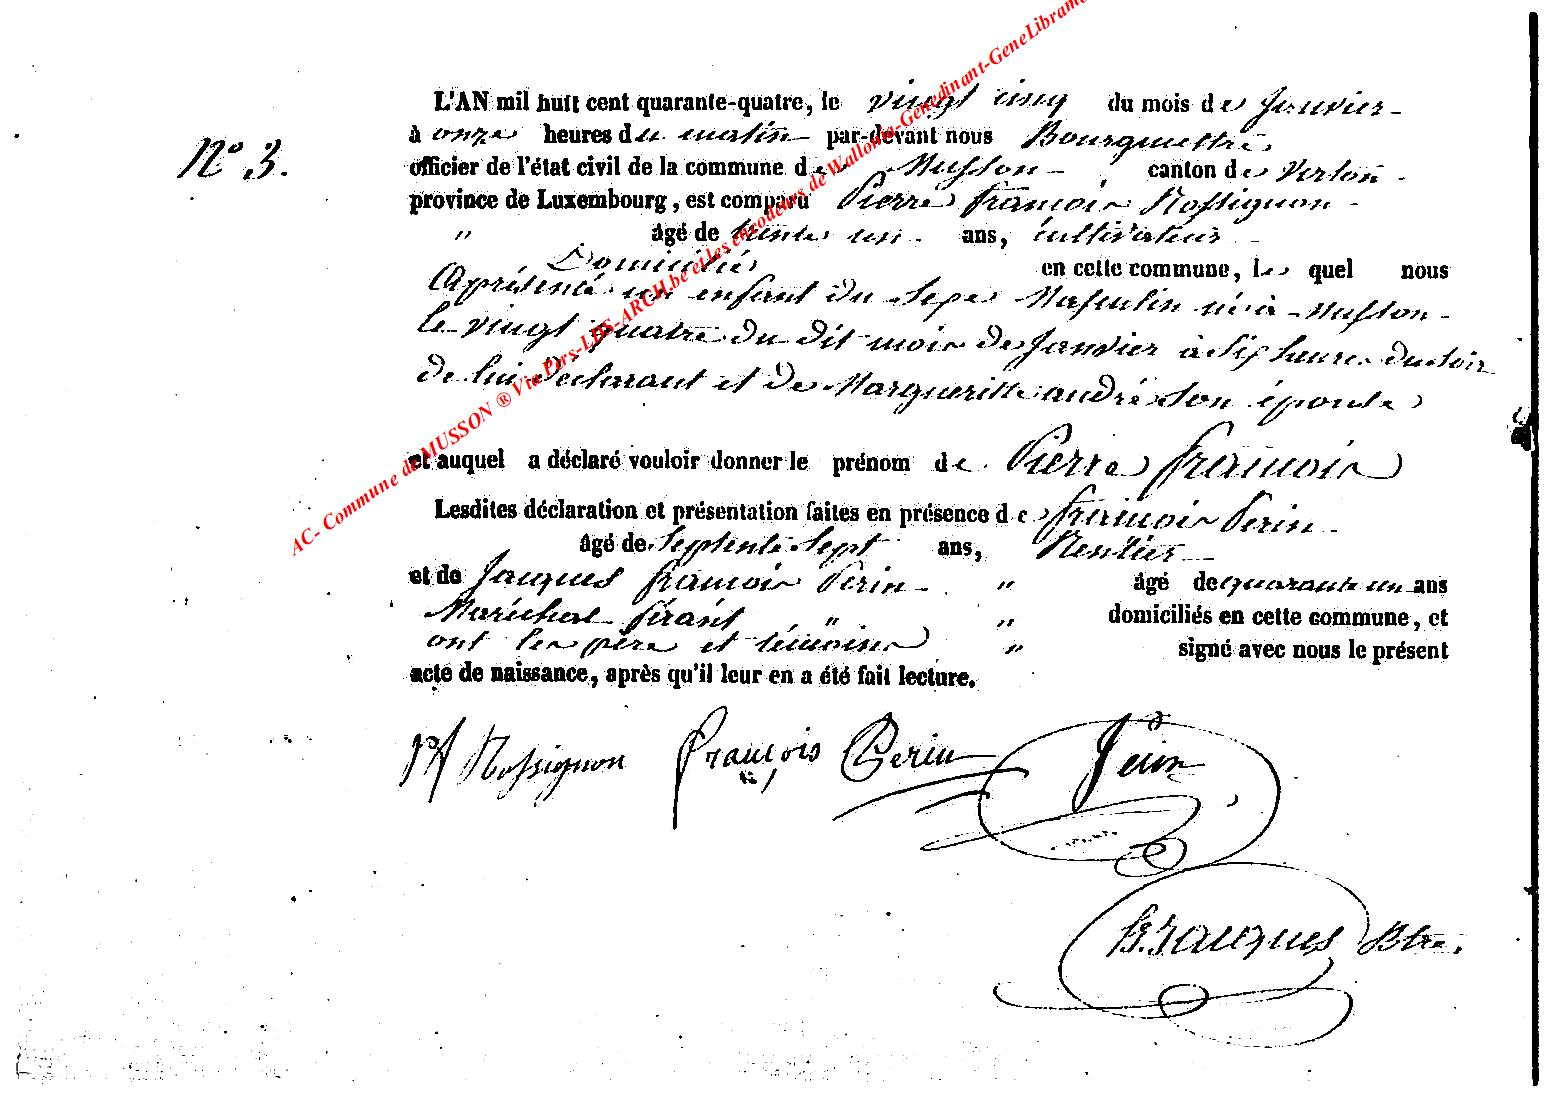 AC- Commune de MUSSON ® Via Pers-LDS-ARCH.be et les encodeurs de Wallonia-Genedinant-GeneLibramont
N° 3.
L'AN mil huit cent quarante-quatre, le vingt cinq du mois de Janvier
à onze heures du matin par-devant nous Bourguettre
officier de l'état civil de la commune de Musson canton de Virton
province de Luxembourg, est comparu Pierre François Rossignon
" âgé de trente un ans, cultivateur
Domicilié en cette commune, le quel nous
a présenté un enfant du sexe Masculin né à Musson
le vingt quatre du dit mois de Janvier à six heures du soir
de lui déclarant et de Margueritte andré son épouse
et auquel a déclaré vouloir donner le prénom de Pierre françois
Lesdites déclaration et présentation faites en présence de françois Perin
âgé de Septente Sept ans, Rentier
et de Jacques françois Perin " âgé de quarante un ans
Maréchal férant " " domiciliés en cette commune, et
ont les père et témoins " signé avec nous le présent
acte de naissance, après qu'il leur en a été fait lecture.
Pf Rossignon François Perin Perin
Jacques Btre.